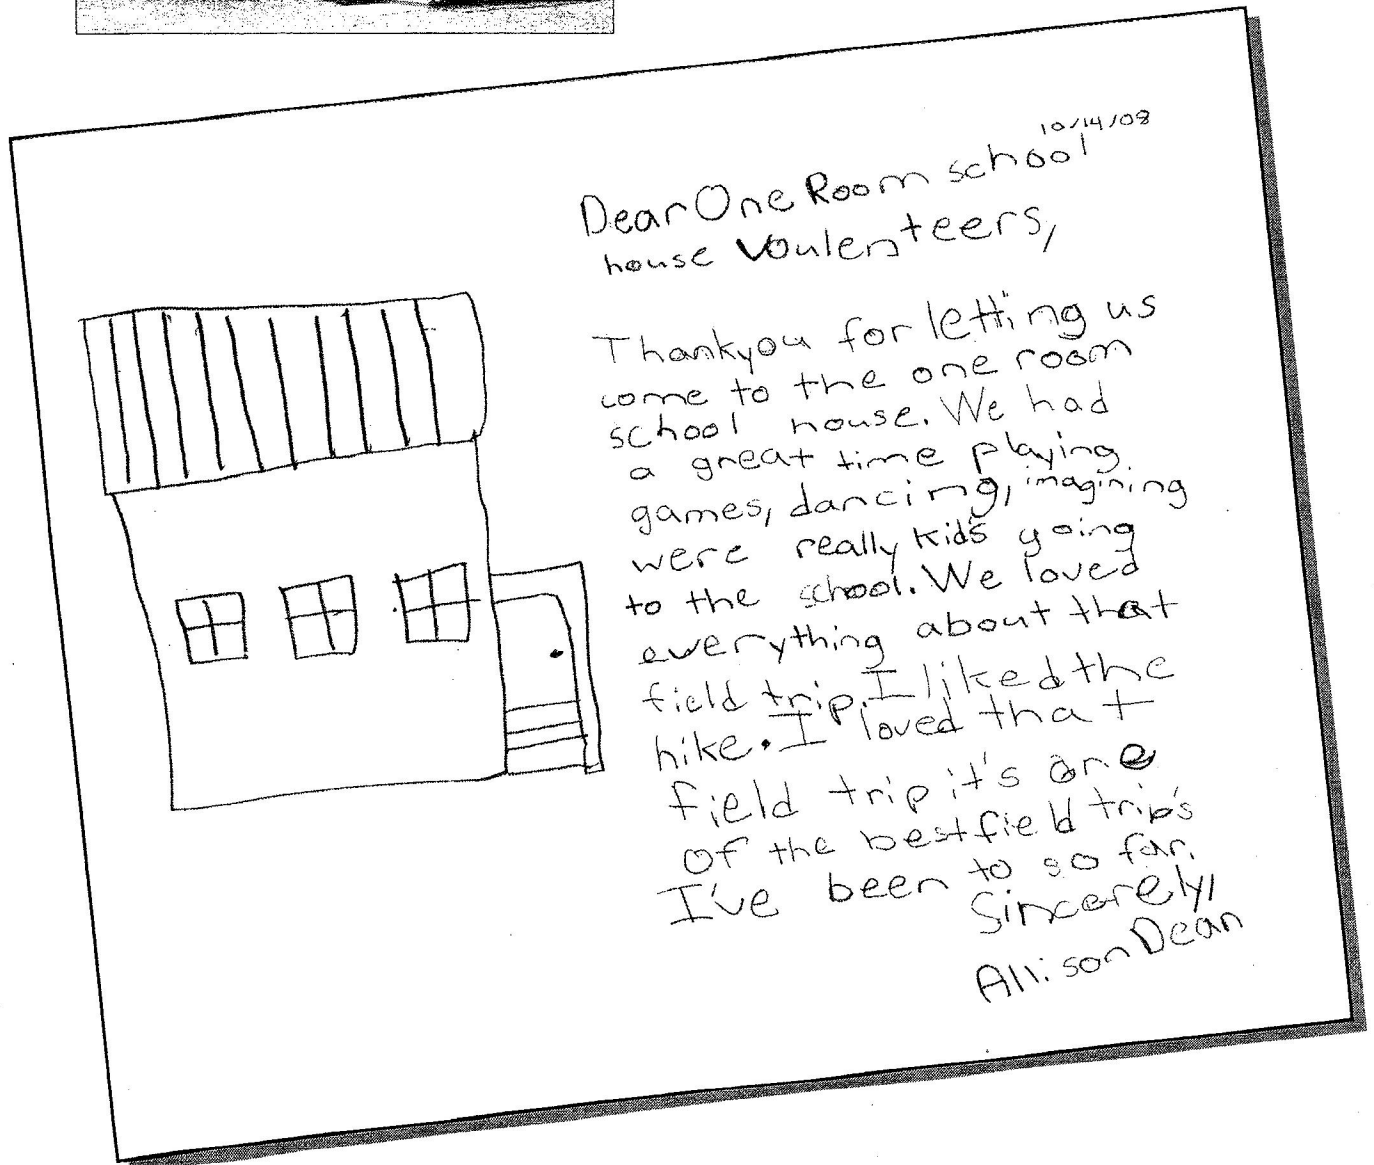 10/14/08
Dear One Room school
house Voulenteers,
Thankyou for letting us
come to the one room
school house. We had
a great time playing
games, dancing, imagining
were really kid's going
to the school. We loved
everything about that
field trip. I liked the
hike. I loved that
field trip it's one
of the best field trip's
I've been to so far.
Sincerely,
Allison Dean